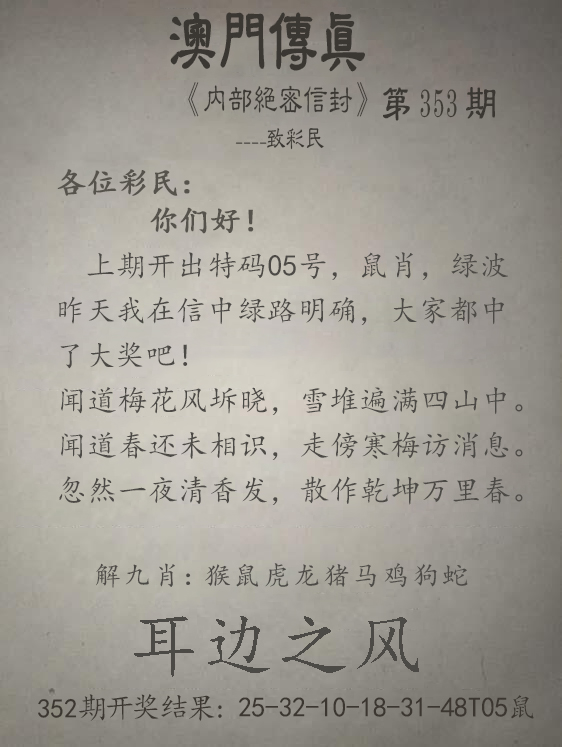 澳門傳真
《内部絕密信封》第353期
----致彩民
各位彩民：
你们好！
上期开出特码05号，鼠肖，绿波
昨天我在信中绿路明确，大家都中
了大奖吧！
闻道梅花风坼晓，雪堆遍满四山中。
闻道春还未相识，走傍寒梅访消息。
忽然一夜清香发，散作乾坤万里春。
解九肖：猴鼠虎龙猪马鸡狗蛇
耳边之风
352期开奖结果：25-32-10-18-31-48T05鼠